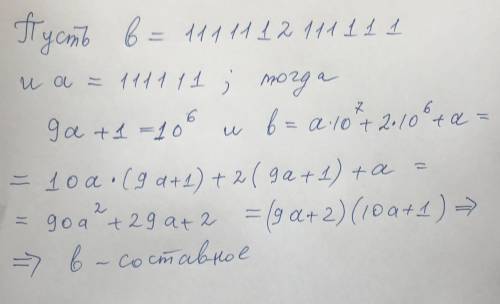 Пусть b = 1111112111111
и a = 111111 ; тогда
9a + 1 = 10⁶ и b = a·10⁷ + 2·10⁶ + a =
= 10a · (9a+1) + 2(9a+1) + a =
= 90a² + 29a + 2 = (9a+2)(10a+1) ⇒
⇒ b – составное